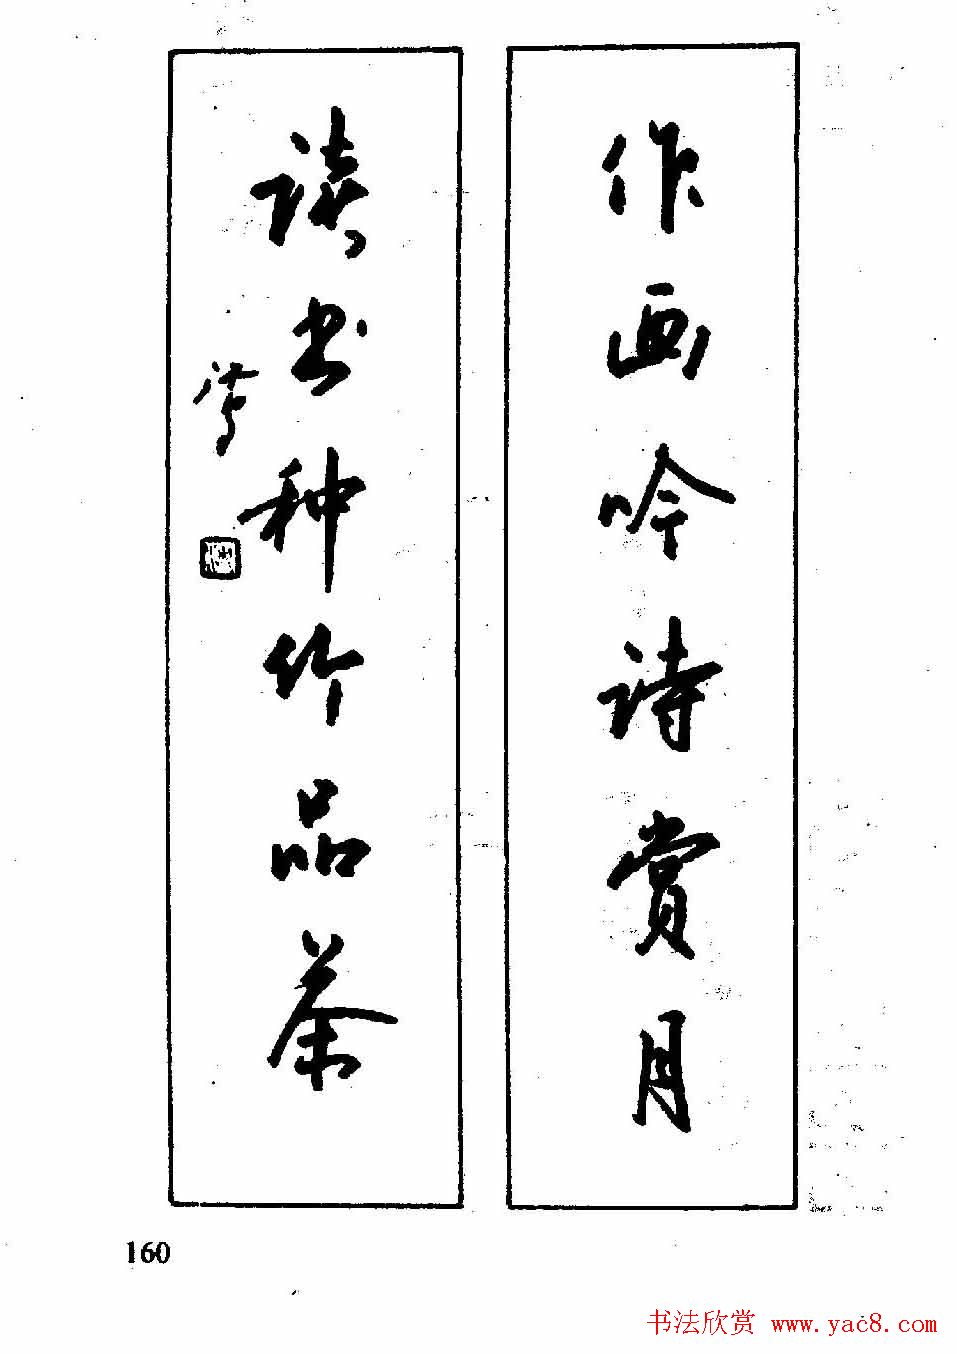 作画吟诗赏月
读书种竹品茶
160
书法欣赏 www.yac8.com